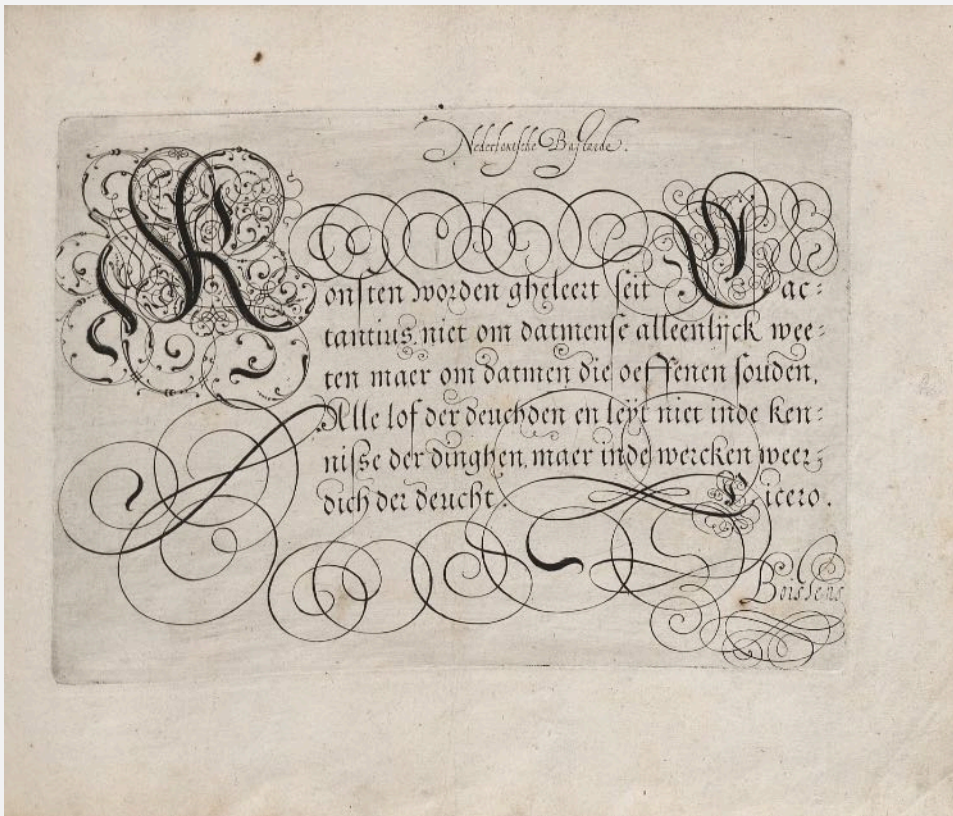 Nederlantsche Bastarde.
Konsten worden gheleert seit Lac:
tantius, niet om datmense alleenlijck wee:
ten maer om datmen die oeffenen souden.
Alle lof der deuchden en leÿt niet inde ken:
nisse der dinghen, maer inde wercken weer:
dich der deucht. Cicero.
Boissens